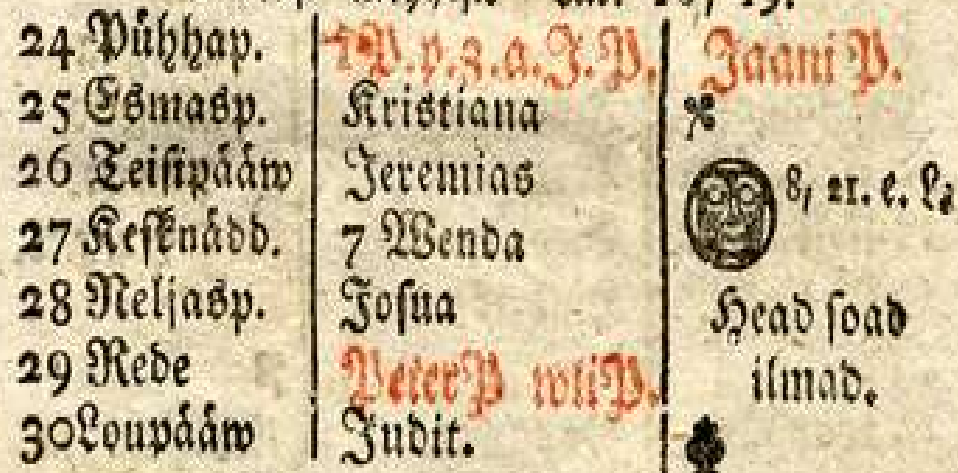 24 Pühhap. 1 P. p. 3. a. J. P. Jaani P.
25 Esmasp. Kristiana
26 Teisipääw Jeremias 8, 21. e. L.
27 Kesknädd. 7 Wenda
28 Neljasp. Josua Head soad
29 Rede Peter P wli P. ilmad.
30 Loupääw Judit.